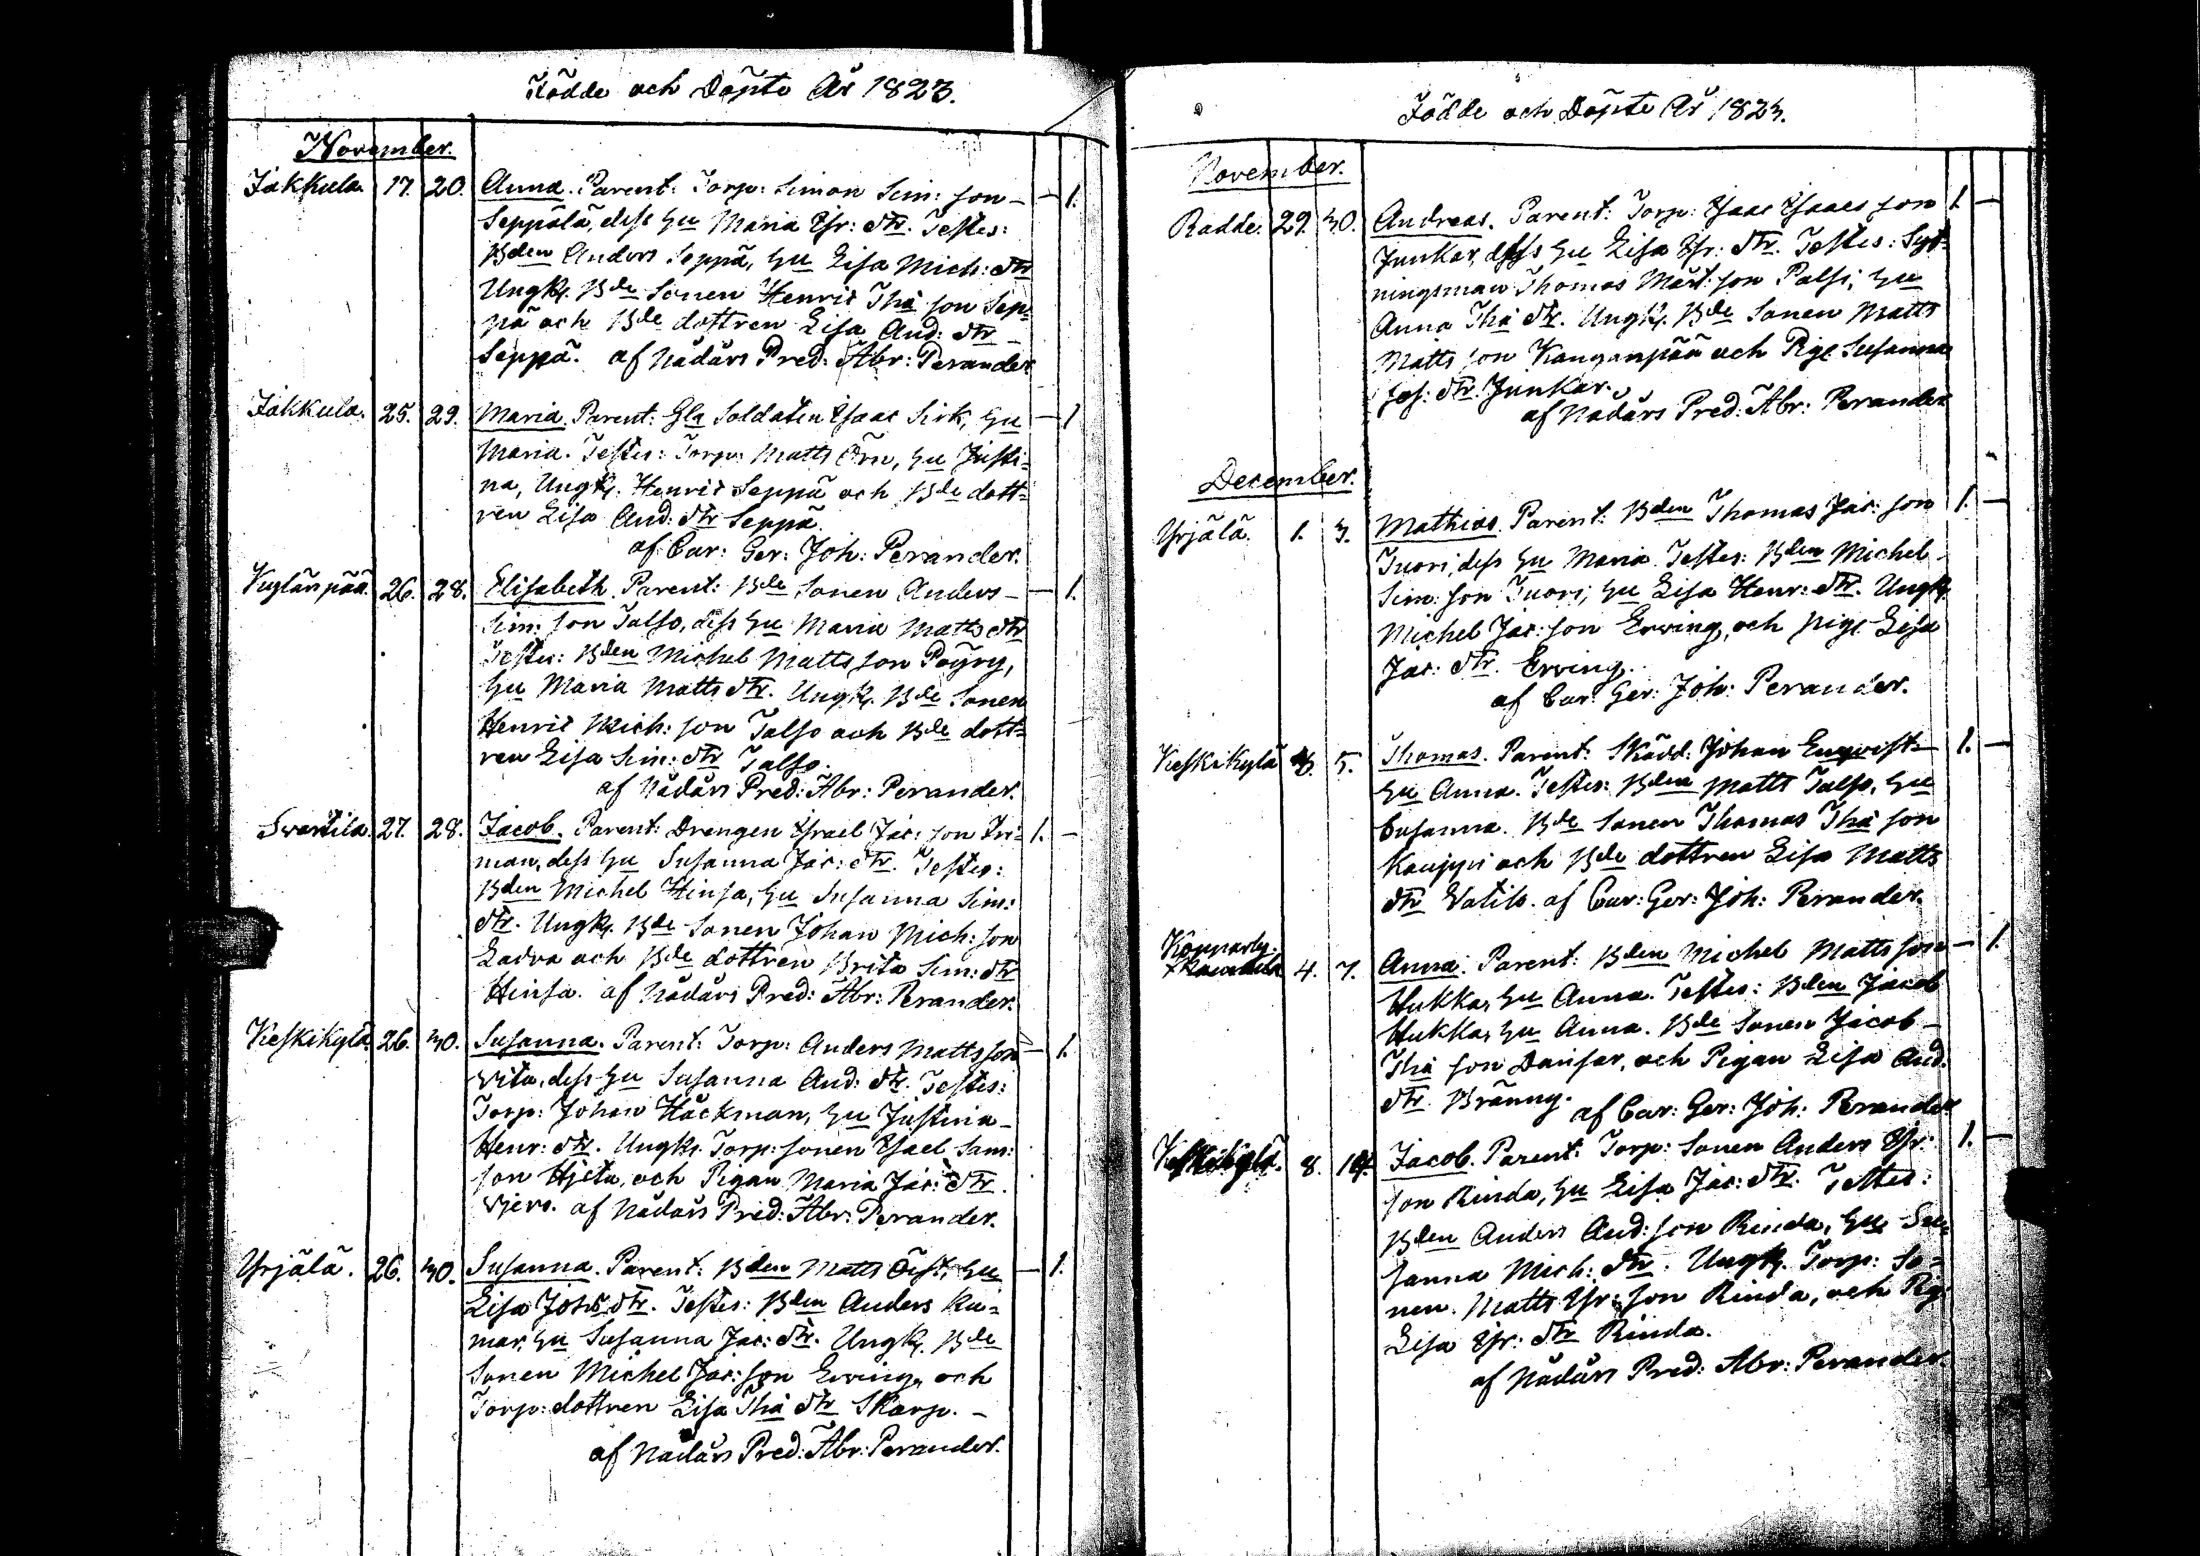 Födde och Döpte År 1823.
November.
Jakkula. 17. 20. Anna. Parent: Torp: Simon Sim: son – – 1.
Seppälä, dess hu Maria Isr: dtr. Testes:
Bden Anders Seppä, hu Lisa Mich: dtr
Ungk. Bde Sonen Henric Tho son Sep=
pä och Bde dottren Lisa And: dtr –
Seppä. af Nådårs Pred: Abr: Perander
Jakkula. 25. 29. Maria. Parent: Gla Soldaten Isaac Sirk, hu – 1
Maria. Testes: Torp: Matts Örn, hu Justi=
na, Ungk. Henric Seppä och Bde dott=
ren Lisa And: dtr Seppä.
af Cur: Ger: Joh: Perander.
26. 28. Elisabeth. Parent: Bde Sonen Anders – – 1.
Sim: son Talso, dess hu Maria Matts dtr
Testes: Bden Michel Matts son Pöyry,
hu Maria Matts dtr. Ungk. Bde Sonen
Henric Mich: son Talso och Bde dott=
ren Lisa Sim: dtr Talso.
af Nådårs Pred: Abr: Perander.
Svartila. 27. 28. Jacob. Parent: Drengen Israel Jac: son In= 1. –
man, dess hu Susanna Jac: dtr. Testes:
Bden Michel Hinsa, hu Susanna Sim:
dtr. Ungk. Bde Sonen Johan Mich: son
Ladva och Bde dottren Brita Sim: dtr
Hinsa. af Nådårs Pred: Abr: Perander.
Keskikylä. 26. 30. Susanna. Parent: Torp: Anders Matts son – 1.
Vita, dess hu Susanna And: dtr. Testes:
Torp: Johan Häckman, hu Justina –
Henr: dtr. Ungk. Torp: sonen Isael Sam:
son Hjeta, och Pigan Maria Jac: dtr.
af Nådårs Pred: Abr: Perander.
Yrjälä. 26. 30. Susanna. Parent: Bden Matts hu – 1.
Lisa Joh: dtr. Testes: Bden Anders Ku=
mar, hu Susanna Jac: dtr. Ungk. Bde
Sonen Michel Jac: son Erving, och
Torp: dottren Lisa Tho dtr Skarp. –
af Nådårs Pred: Abr: Perander.
Födde och Döpte År 1823.
November.
Radde. 29. 30. Andreas. Parent: Torp: Isaac Isaacs son 1. –
Junkar, dess hu Lisa Isr: dtr. Testes: Syt=
ningsman Thomas Mårt: son Palsi, hu
Anna Tho dtr. Ungk. Bde Sonen Matts
Matts son Kanganpää och Pig. Susanna
Jos: dtr. Junkar.
af Nådårs Pred: Abr: Perander
December.
Yrjälä. 1. 3. Mathias. Parent: Bden Thomas Jac: son 1. –
Tuori, dess hu Maria. Testes: Bden Michel
Sim: son Tuori, hu Lisa Henr: dtr. Ungk.
Michel Jac: son Erving, och pig. Lisa
Jac: dtr. Erving.
af Cur: Ger: Joh: Perander.
Keskikylä 5. Thomas. Parent: Skädd: Johan Enqvist – 1. –
hu Anna. Testes: Bden Matts Talso, hu
Susanna. Bde Sonen Thomas Tho son
Kauppi och Bde dottren Lisa Matts
dtr af Cur: Ger: Joh: Perander.
4. 7. Anna. Parent: Bden Michel Matts son – 1.
Hukka, hu Anna. Testes: Bden Jacob
Hukka, hu Anna. Bde Sonen Jacob –
Tho son Dansar, och Pigan Lisa And:
dtr. Bränny.
af Cur: Ger: Joh: Perander
Keskikylä. 8. 14. Jacob. Parent: Torp: Sonen Anders Isr: 1. –
son Rinda, hu Lisa Jac: dtr. Testes:
Bden Anders And: son Rinda, hu Su=
sanna Mich: dtr. Ungk. Torp: So=
nen. Matts Isr: son Rinda, och Pig:
Lisa Isr: dtr Rinda.
af Nådårs Pred: Abr: Perander.